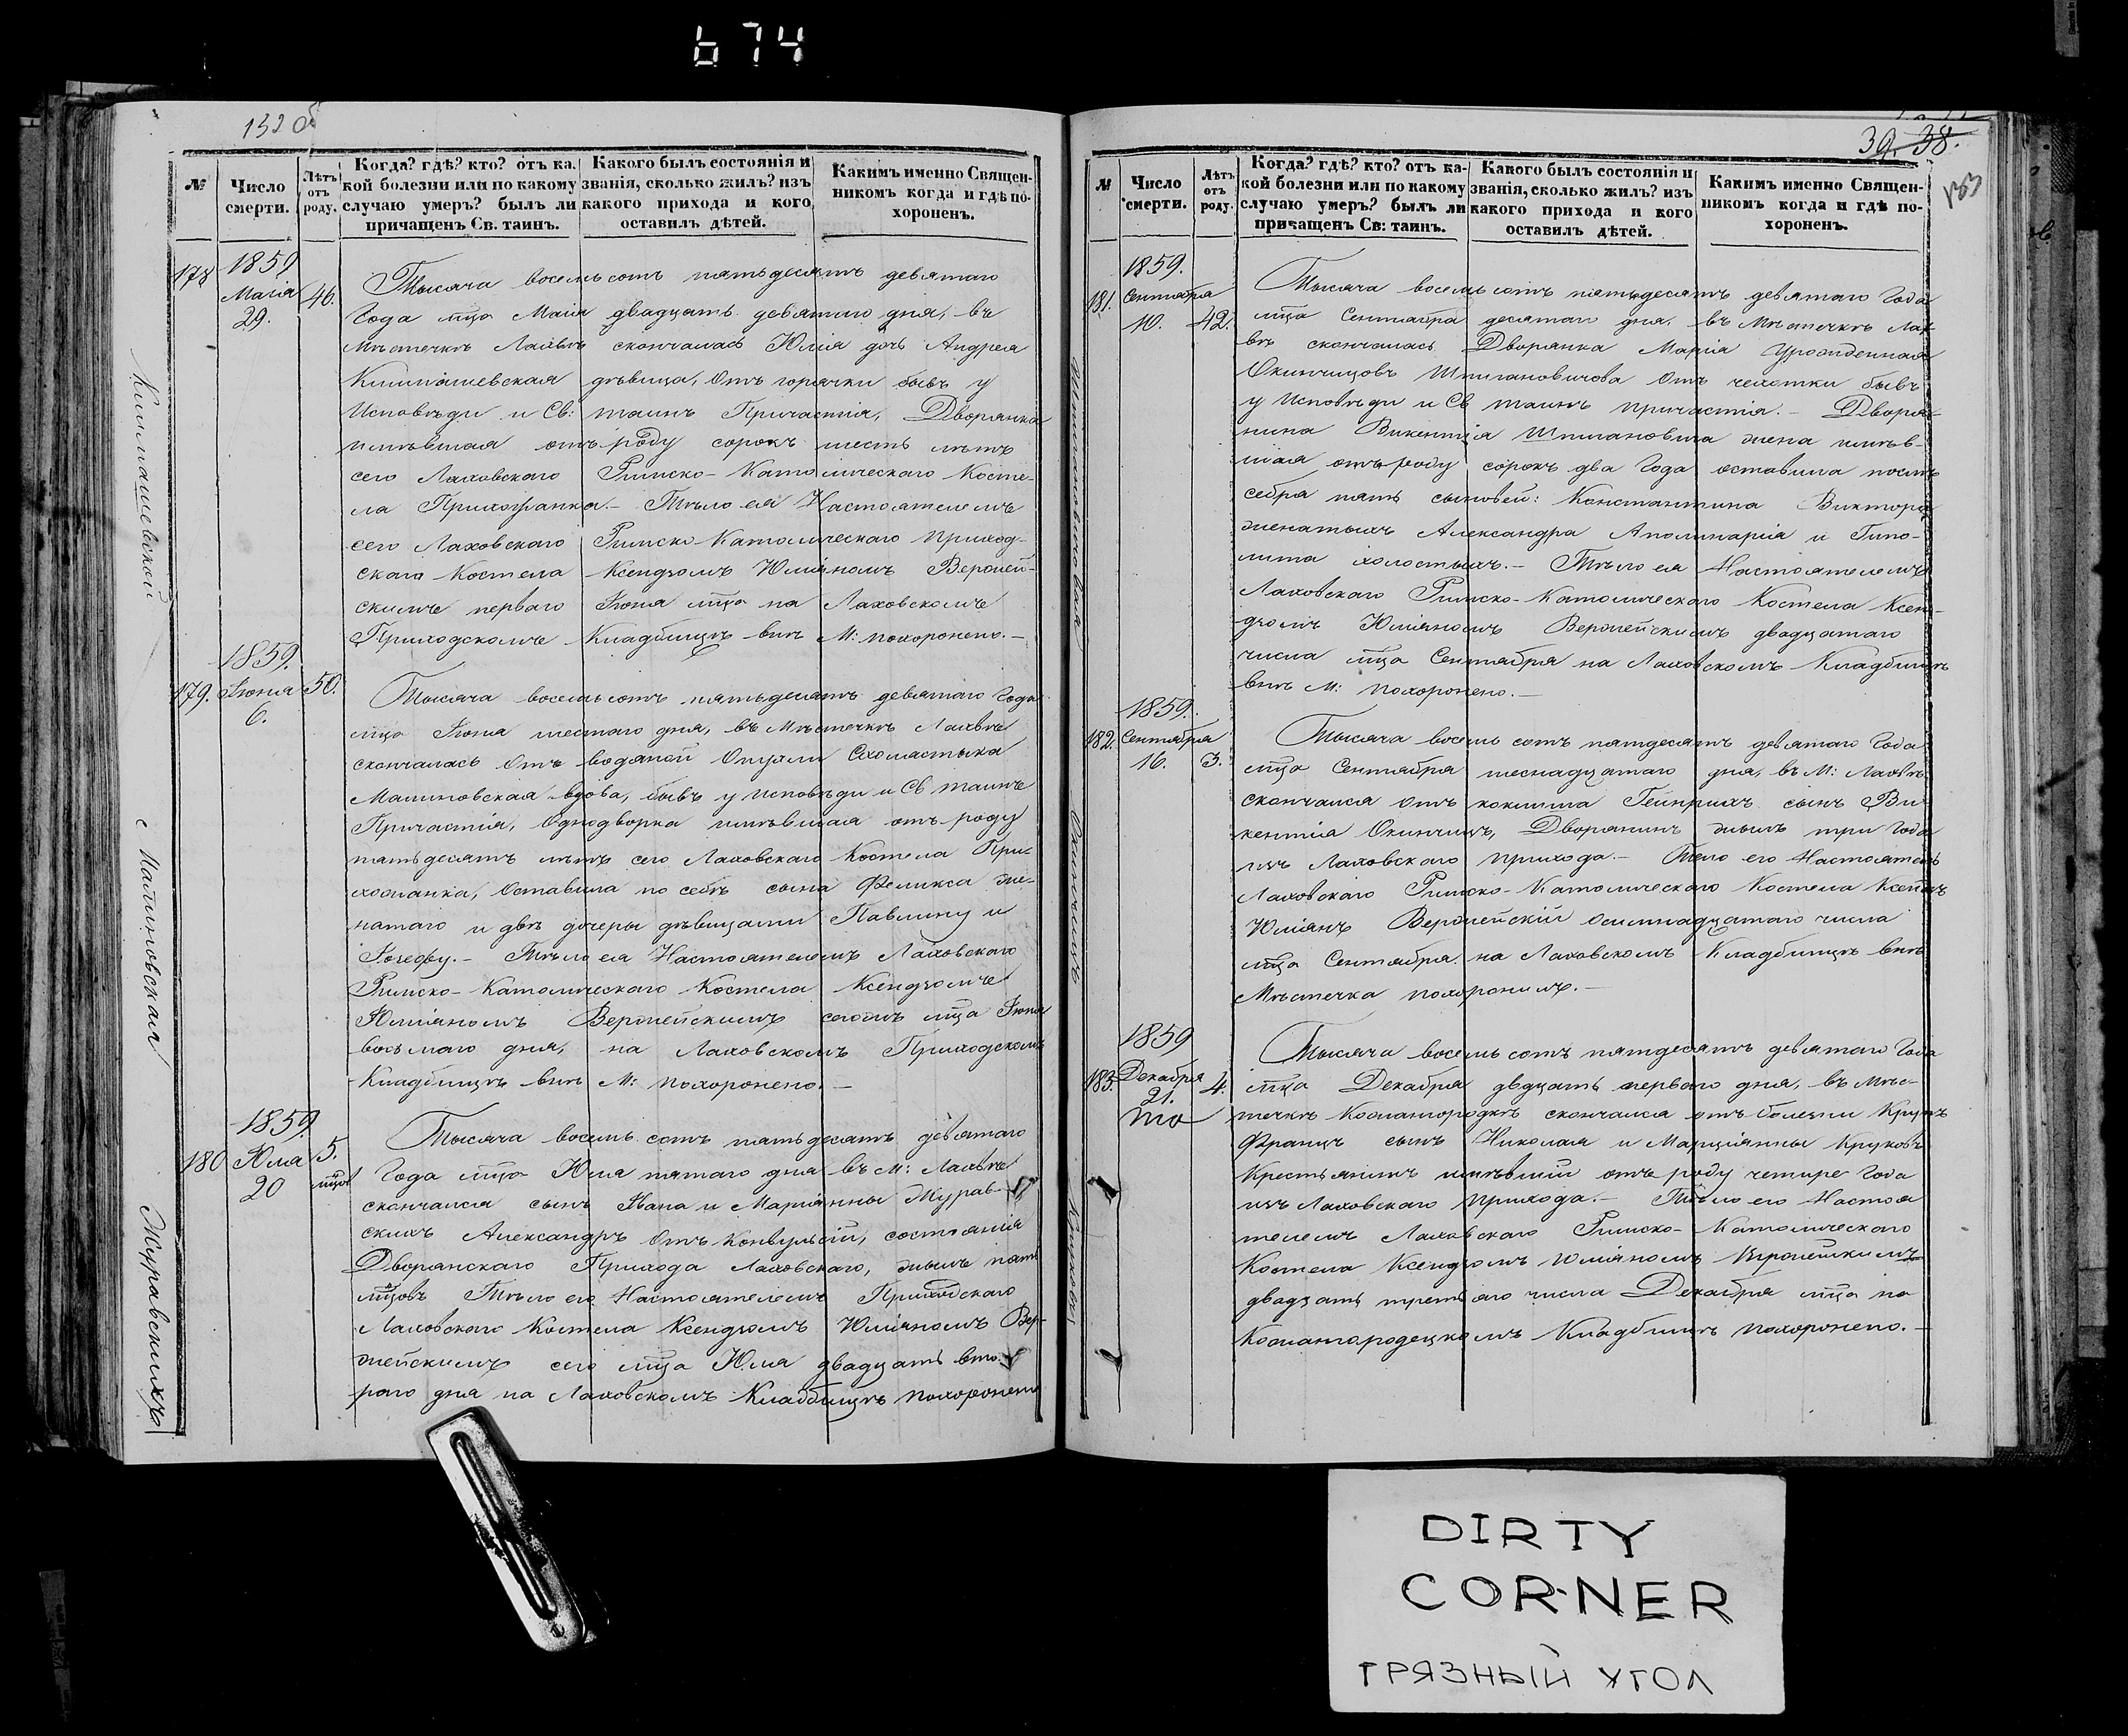 674
132 об
№
Число смерти.
Лѣтъ отъ роду.
Когда? гдѣ? кто? отъ ка-
кой болезни или по какому
случаю умеръ? былъ ли
причащенъ Св. таинъ.
Какого былъ состоянія и
званія, сколько жилъ? изъ
какого прихода и кого
оставилъ дѣтей.
Какимъ именно Священ-
никомъ когда и гдѣ по-
хороненъ.
178
1859
Маія
29.
46.
Тысяча восемьсотъ пятьдесятъ девятаго
Года мца Маія двадцать девятаго дня, въ
Мѣстечкѣ Лахвѣ скончалась Юлія дочь Андрея
Климашевская дѣвица, отъ горячки бывъ у
Исповѣди и Св: таинъ Причастія, Дворянка
имѣвшая отъ роду сорокъ шесть лѣтъ
сего Лаховского Римско-Католическаго Косте-
ла Прихожанка. – Тѣло ея Настоятелемъ
сего Лаховского Римско-Католическаго приход-
скаго Костела Ксендзомъ Юліяномъ Верпей-
скимъ перваго Іюня мца на Лаховскомъ
Приходскомъ Кладбищѣ внѣ М: похоронено. –
Климашевской
179.
1859.
Іюня
6.
50.
Тысяча восемьсотъ пятьдесятъ девятаго Года
мца Іюня шестаго дня, въ Мѣстечкѣ Лахвѣ
скончалась отъ водяной Опухли Схоластыка
Малиновская вдова, бывъ у исповѣди и Св таинъ
Причастія, Однодворка имѣвшая отъ роду
пятьдесятъ лѣтъ сего Лаховскаго Костела При-
хожанка, Оставила по себѣ сына Феликса же-
натаго и двѣ дочеры дѣвицами Павлину и
Іозефу. – Тѣло ея Настоятелемъ Лаховскаго
Римско-Католическаго Костела Ксендзомъ
Юліяномъ Верпейскимъ сегожъ мца Іюня
восьмаго дня, на Лаховскомъ Приходскомъ
Кладбищѣ внѣ М: похоронено. –
Малиновская
180
1859.
Юля
20
5.
мцов
Тысяча восемь сотъ пятьдесятъ девятаго
Года мца Юля пятаго дня въ М: Лахвѣ
скончался сынъ Ивана и Маріянны Журав-
скихъ Александръ отъ Конвульсій, состоянія
Дворянскаго Прихода Лаховскаго, жылъ пять
мцовъ Тѣло его Настоятелемъ Приходскаго
Лаховскаго Костела Ксендзомъ Юліяномъ Вер-
пейскимъ сего мца Юля двадцать вто-
раго дня на Лаховскомъ Кладбищѣ похоронено
Журавскихъ
39. 38.
133
№
Число смерти.
Лѣтъ отъ роду.
Когда? гдѣ? кто? отъ ка-
кой болезни или по какому
случаю умеръ? былъ ли
причащенъ Св: таинъ.
Какого былъ состоянія и
званія, сколько жилъ? изъ
какого прихода и кого
оставилъ дѣтей.
Какимъ именно Священ-
никомъ когда и гдѣ по-
хороненъ.
181.
1859.
Сентября
10.
42.
Тысяча восемьсотъ пятьдесятъ девятаго Года
мца Сентября десятаго дня, въ Мѣстечкѣ Лах-
вѣ скончалась Дворянка Марія Урожденная
Окинчицовъ Шпилановичова Отъ чехотки бывъ
у Исповѣди и Св таинъ причастія. – Дворя-
нина Викентія Шпилановича жена имѣв-
шая отъ роду сорокъ два Года оставила послѣ
себя пять сыновей: Константина Виктора
женатыхъ Александра Аполинарія и Гипо-
лита холостыхъ. – Тѣло ея Настоятелемъ
Лаховскаго Римско-Католическаго Костела Ксен-
дзомъ Юліяномъ Верпейскимъ двадцатаго
числа мца Сентября на Лаховскомъ Кладбищѣ
внѣ М: похоронено. –
182.
1859.
Сентября
16.
3.
Тысяча восемь сотъ пятдесятъ девятаго Года
мца Сентября шеснадцатаго дня, въ М: Лахвѣ
скончался отъ коклюша Гейнрихъ сынъ Ви-
кентія Окинчицъ, Дворянинъ жылъ три Года
изъ Лаховскаго прихода. – Тело его Настоятель
Лаховскаго Римско-Католическаго Костела Ксендзъ
Юліянъ Верпейскій Осимнадцатаго числа
мца Сентября на Лаховскомъ Кладбищѣ внѣ
Мѣстечка похоронилъ. –
183.
1859
Декабря
21.
4.
Тысяча восемь сотъ пятдесятъ девятаго Года
мца Декабря двдцать перваго дня, въ Мѣс-
течкѣ Кожангородкѣ скончался отъ болезни Крупъ
Францъ сынъ Николая и Марціянны Круковъ
Крестьянинъ имѣвшій отъ роду четире Года
изъ Лаховскаго прихода. – Тѣло его Настоя
телемъ Лаховскаго Римско-Католическаго
Костела Ксендзомъ Юліяномъ Верпейскимъ
двадцать третьяго числа Декабря мца на
Кожангородецкомъ Кладбищѣ похоронено. –
DIRTY
CORNER
ГРЯЗНЫЙ УГОЛ